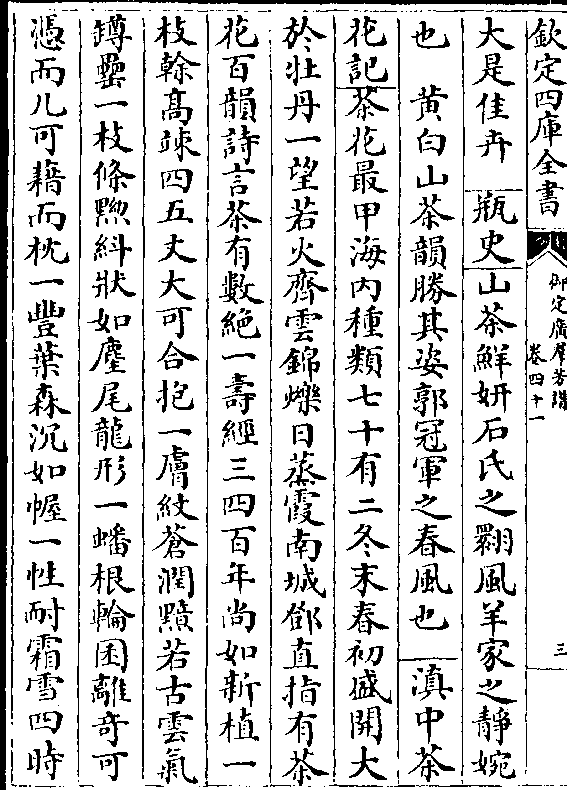 欽定四庫全書
御定廣羣芳譜
卷四十一
三
大是佳卉　瓶史山茶鮮妍石氏之翾風羊家之靜婉
也　黃白山茶韻勝其姿郭冠軍之春風也　滇中茶
花記茶花最甲海内種類七十有二冬末春初盛開大
於牡丹一望若火齊雲錦爍日蒸霞南城鄧直指有茶
花百韻詩言茶有數絶一壽經三四百年尚如新植一
枝榦髙竦四五丈大可合抱一膚紋蒼潤黯若古雲氣
罇罍一枝條黝糾狀如麈尾龍形一蟠根輪囷離奇可
憑而几可藉而枕一豐葉森沉如幄一性耐霜雪四時